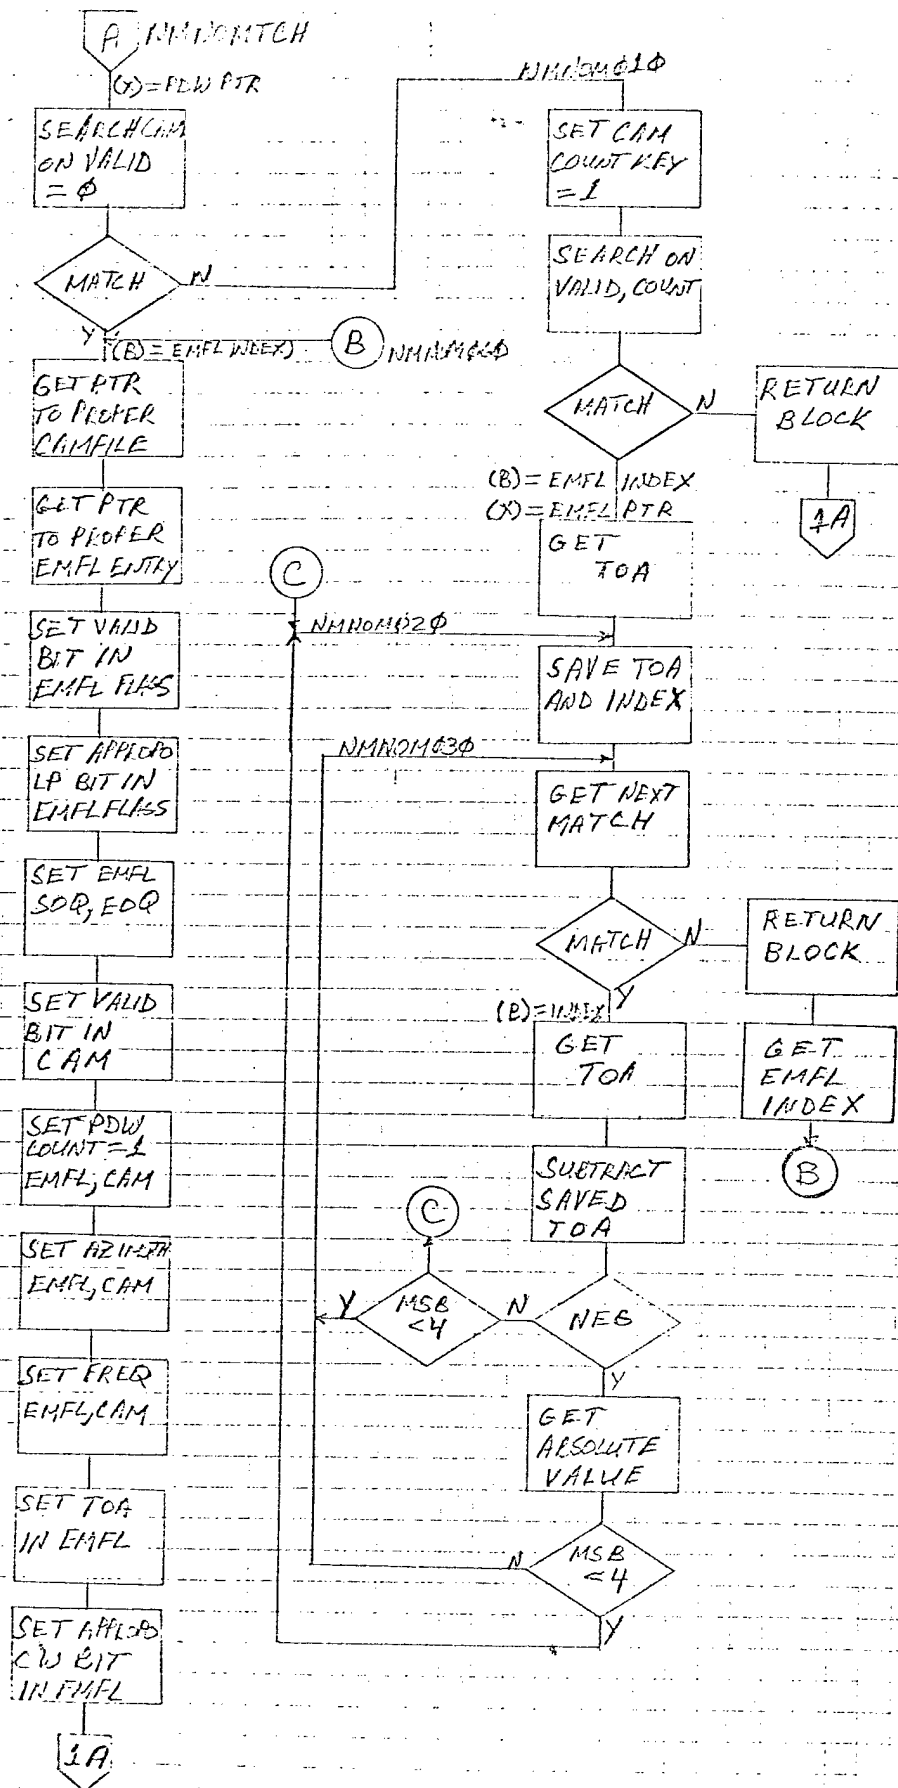 A NMNOMTCH
(X)=PDW PTR
SEARCH CAM
ON VALID
= φ
MATCH
N
Y
(B)=EMFL INDEX
B
GET PTR
TO PROPER
CAMFILE
GET PTR
TO PROPER
EMFL ENTRY
SET VALID
BIT IN
EMFL FLAGS
SET APPROPO
LP BIT IN
EMFL FLAGS
SET EMFL
SOQ, EOQ
SET VALID
BIT IN
CAM
SET PDW
COUNT=1
EMFL, CAM
SET AZIMUTH
EMFL, CAM
SET FREQ
EMFL, CAM
SET TOA
IN EMFL
SET APPROPO
CW BIT
IN EMFL
1A
NMNOMφ1φ
SET CAM
COUNT KEY
=1
SEARCH ON
VALID, COUNT
MATCH
N
RETURN
BLOCK
1A
(B)=EMFL INDEX
(X)=EMFL PTR
GET
TOA
C
NMNOMφ2φ
SAVE TOA
AND INDEX
NMNOMφ3φ
GET NEXT
MATCH
MATCH
N
RETURN
BLOCK
GET
EMFL
INDEX
B
Y
(B)=INDEX
GET
TOA
SUBTRACT
SAVED
TOA
NEG
N
MSB
<4
Y
C
Y
GET
ABSOLUTE
VALUE
MSB
<4
N
Y